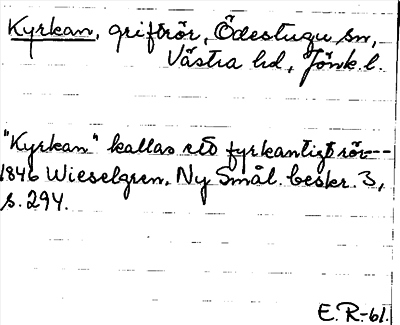 Kyrkan, griftrör, Ödestugu sn,
Västra hd, Jönk. l.
"Kyrkan" kallas ett fyrkantigt rör---
1846 Wieselgren, Ny Smål. beskr. 3,
s. 294.
E. R-61.